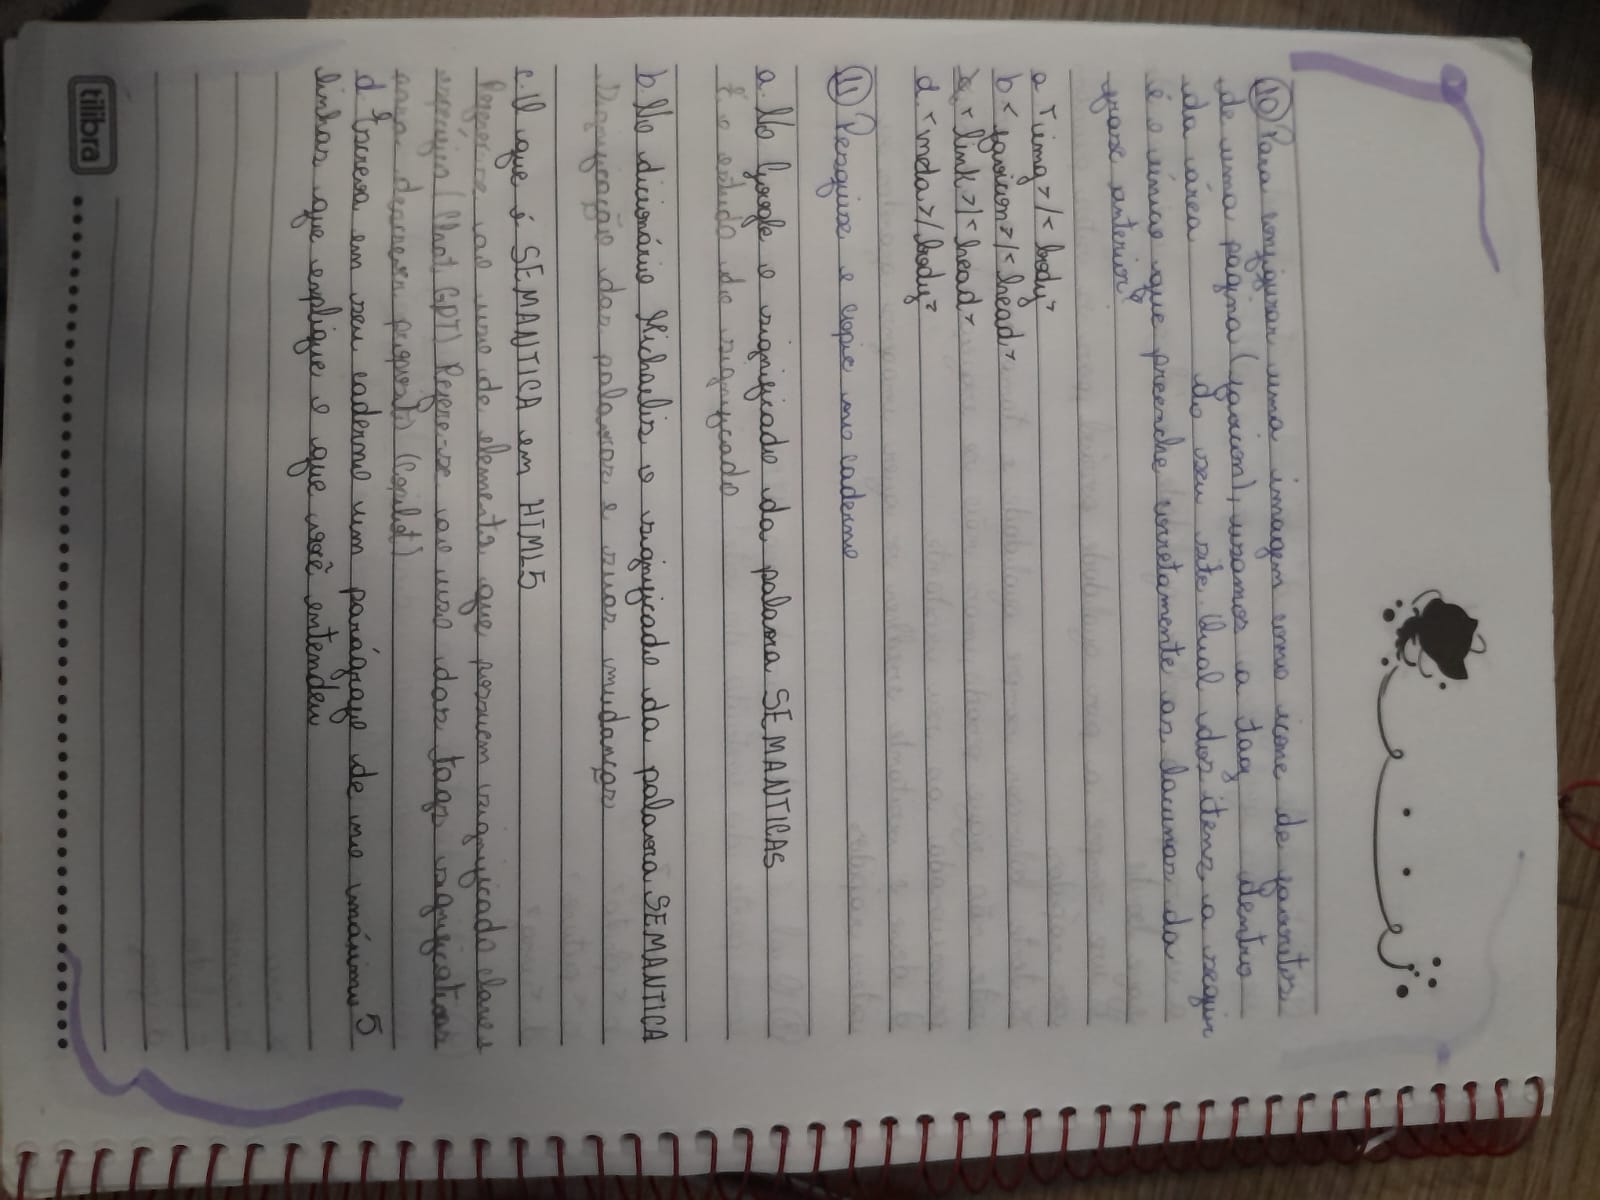 10 Para configurar uma imagem como ícone de favoritos
de uma página (favicon), usamos a tag dentro
da área do seu site. Qual dos itens a seguir
é o único que preenche corretamente as lacunas da
frase anterior?
a <img> / <body>
b < favicon> / <head>
c < link> / <head>
d. <meta> / body>
11 Pesquise e copie no caderno
a. No Google o significado da palavra SEMANTICAS
É o estudo do significado
b No dicionário Michaelis o significado da palavra SEMANTICA
Significação das palavras e suas mudanças
c. O que é SEMANTICA em HTML5
Refere-se ao uso de elementos que possuem significado claro e
(Chat GPT) Refere-se ao uso das tags significativas
para descrever (Copilot)
d Escreva em seu caderno um parágrafo de no mínimo 5
linhas que explique o que você entendeu
tilibra